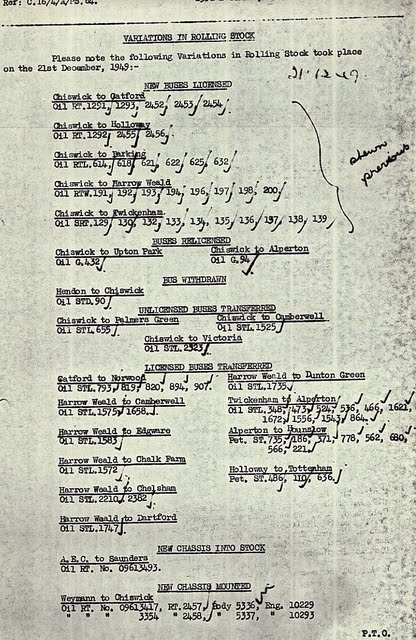 Ref: C.16/4/
VARIATIONS IN ROLLING STOCK
Please note the following Variations in Rolling Stock took place
on the 21st December, 1949:-
21.12.49
NEW BUSES LICENSED
Chiswick to Catford
Oil RT.1291, 1293, 2452, 2453, 2454.
Chiswick to Holloway
Oil RT.1292, 2455, 2456.
shewn
previous
Chiswick to Barking
Oil RTL.614, 618, 621, 622, 625, 632
Chiswick to Harrow Weald
Oil RTW.191, 192, 193, 194, 196, 197, 198, 200.
Chiswick to Twickenham.
Oil SRT.129, 130, 132, 133, 134, 135, 136, 137, 138, 139
BUSES RELICENSED
Chiswick to Upton Park Chiswick to Alperton
Oil G.432 Oil G.94
BUS WITHDRAWN
Hendon to Chiswick
Oil STD.90
UNLICENSED BUSES TRANSFERRED
Chiswick to Palmers Green Chiswick to Camberwell
Oil STL.655 Oil STL.1525
Chiswick to Victoria
Oil STL.2323
LICENSED BUSES TRANSFERRED
Catford to Norwood Harrow Weald to Dunton Green
Oil STL.793, 819, 820, 894, 907. Oil STL.1735.
Harrow Weald to Camberwell Twickenham to Alperton
Oil STL.1575, 1658. Oil STL.348, 473, 524, 536, 466, 1621,
1672, 1556, 1543, 864.
Harrow Weald to Edgware Alperton to Hounslow
Oil STL.1583 Pet. ST.735, 186, 371, 778, 562, 680,
566, 221.
Harrow Weald to Chalk Farm
Oil STL.1572 Holloway to Tottenham
Pet. ST.486, 110, 636.
Harrow Weald to Chelsham
Oil STL.2210, 2382
Harrow Weald to Dartford
Oil STL.1747
NEW CHASSIS INTO STOCK
A.E.C. to Saunders
Oil RT. No. 09613493.
NEW CHASSIS MOUNTED
Weymann to Chiswick
Oil RT. No. 09613417, RT.2457, Body 5336, Eng. 10229
" " " 3354 " 2458, " 5337, " 10293
P.T.O.